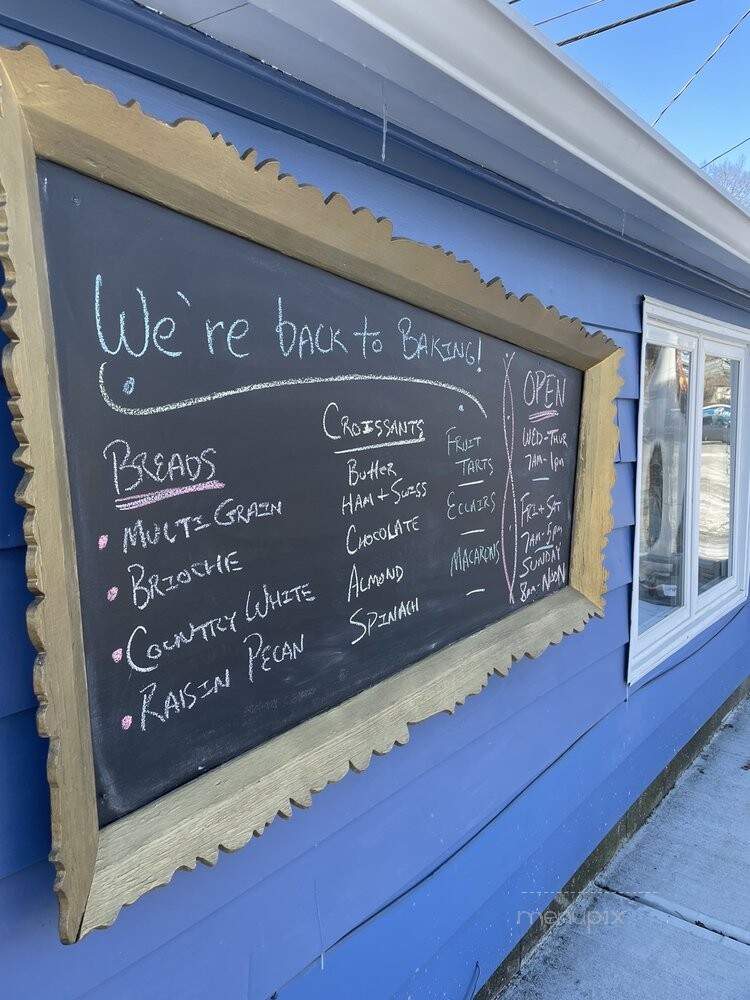 We're back to BAKING!
BREADS
• MULTI GRAIN
• BRIOCHE
• COUNTRY WHITE
• RAISIN PECAN
CROISSANTS
BUTTER
HAM + SWISS
CHOCOLATE
ALMOND
SPINACH
FRUIT
TARTS
ECLAIRS
MACARONS
OPEN
WED-THUR
7AM-1PM
FRI + SAT
7AM-5PM
SUNDAY
8AM-NOON
menupix